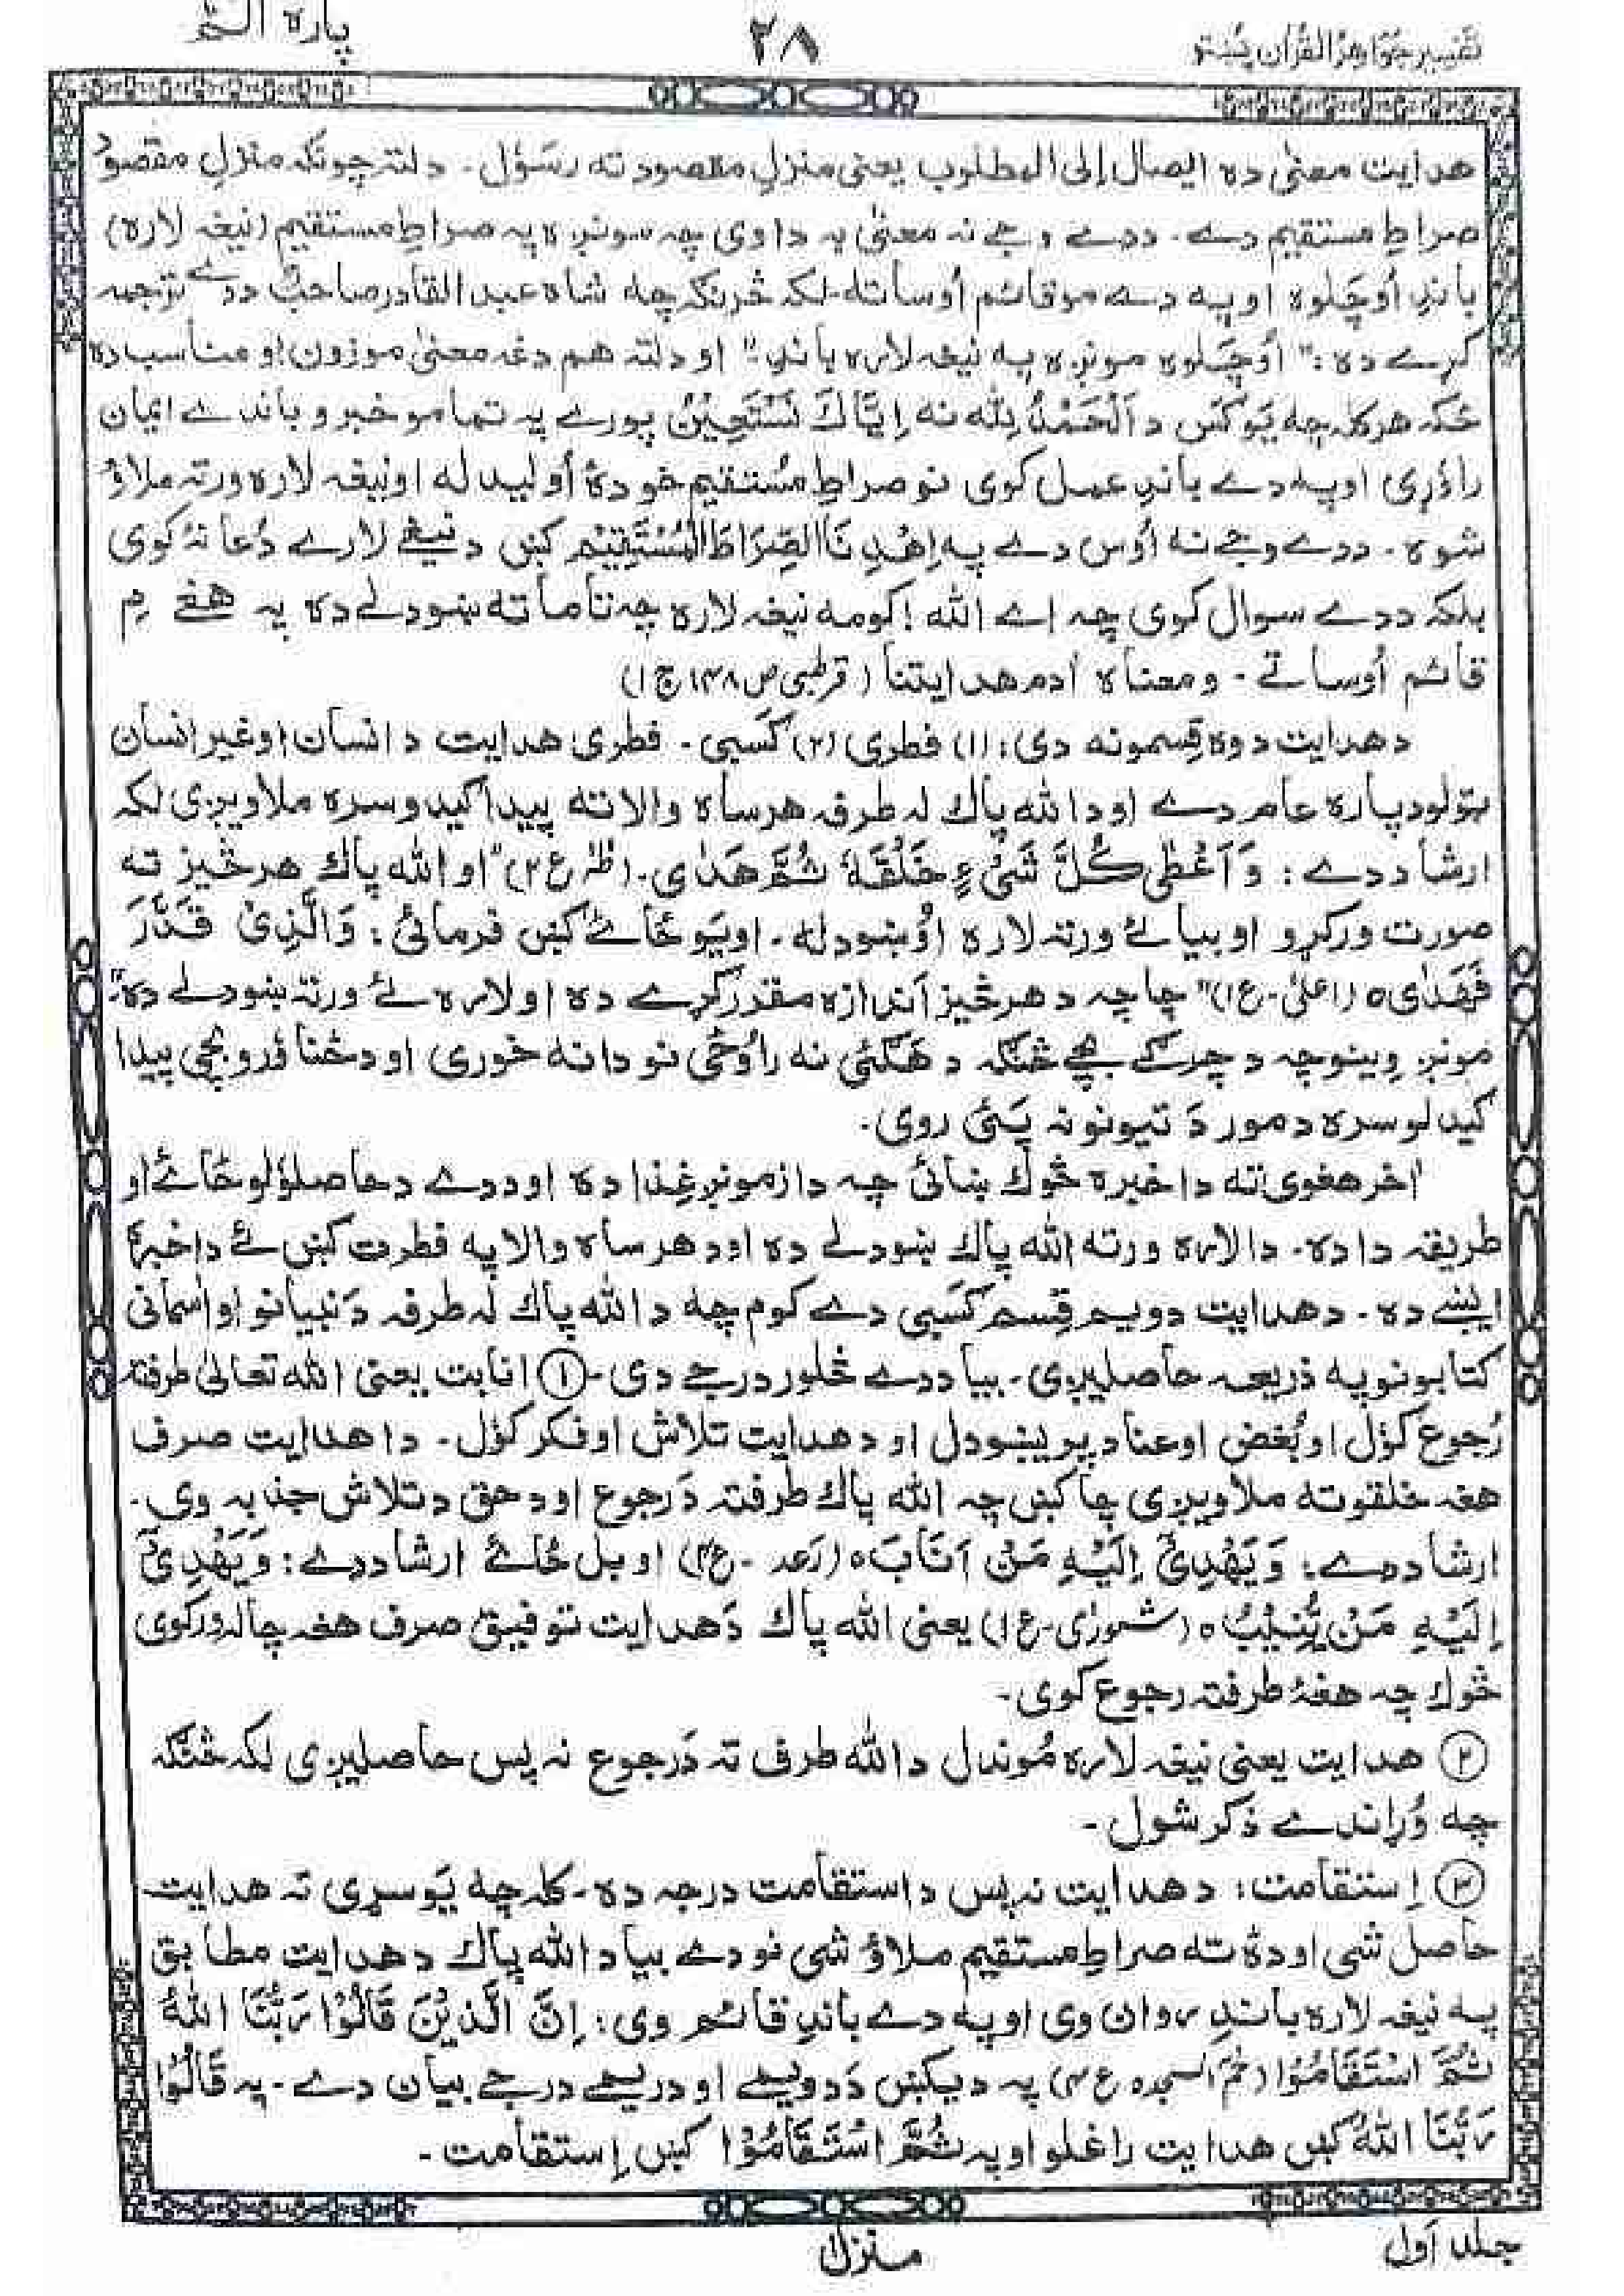 تفسیر جواهر القرآن پښتو
۲۸
پاره الٓمّٓ
هدایت معنیٰ ده ایصال إلی المطلوب یعنی منزلِ مقصود ته رسَوُل۔ دلته چونکه منزلِ مقصودُ
صراطِ مستقیم دے۔ ددے وجے نه معنیٰ به داوی چه مونږه په صراطِ مستقیم (نیغه لاره)
باندِ اُوچَلوه اوپه دے مو قائم اُوساته۔ لکه څرنګه چه شاه عبد القادر صاحبؒ ددے ترجمه
کړے ده: "اُوچَلوه مونږه په نیغه لاره باندِ" او دلته هم دغه معنیٰ موزون او مناسب ده
ځکه هرکله چه یَوکَس د اَلْحَمْدُ لِلّٰه نه اِیَّاكَ نَسْتَعِیْنُ پورے په تمامو خبرو باندے ایمان
راوُړی اوپه دے باندِ عمل کوی نو صراطِ مُستقیم خو دۀ اُولیدله اونیغه لاره ورته ملاؤ
شوه۔ ددے وجے نه اُوس دے په اِهْدِنَا الصِّرَاطَ الْمُسْتَقِیْم کښ د نیغے لارے دُعا نۀ کوی
بلکه ددے سوال کوی چه اے الله! کومه نیغه لاره چه تا ماته ښودلے ده په هغے مِ
قائم اُوساتے۔ ومعناه أدم هدایتنا (قرطبی ص ۱۴۸ ج ۱)
دهدایت دوه قِسمونه دی: (۱) فطری (۲) کَسبی۔ فطری هدایت د انسان اوغیر انسان
ټولو دپاره عام دے اود الله پاك له طرفه هر ساه والاته پیدا کیدو سره ملاویږی لکه
ارشاد دے: وَاَعْطٰی کُلَّ شَیْءٍ خَلْقَهٗ ثُمَّ هَدٰی۔ (طٰهٰ ع ۲) "او الله پاك هر څیز ته
صورت ورکړو او بیائے ورته لاره اوُښودله۔ اویَوځائے کښ فرمائی: وَالَّذِیْ قَدَّرَ
فَهَدٰی ه (اعلیٰ۔ ع ۱) "چاچه دهر څیز اندازه مقرر کړے ده اولاره ئے ورته ښودلے ده"
مونږ وِینوچه د چرګے بچے څنګه دهګئی نه راوُځی نو دانه خوری اود څناوُرو بچی پیدا
کیدلو سره دمور دَ تیونو نه پَئی روی۔
اٰخر هغوی ته داخبره څوك ښائی چه دا زمونږ غِذا ده اوددے دحاصلؤلو ځائے او
طریقه داده۔ دا لاره ورته الله پاك ښودلے ده اود هرساه والا په فطرت کښ ئے داخبره
ایښے ده۔ دهدایت دویم قِسم کَسَبی دے کوم چه د الله پاك له طرفه دَنبیانو او اٰسمانی
کتابونو په ذریعه حاصلیږی۔ بیا ددے څلور درجے دی۔ ① انابت یعنی الله تعالیٰ طرفته
رُجوع کوُل اوبُغض اوعناد پریښودل او دهدایت تلاش اوفکر کوُل۔ دا هدایت صرف
هغه خلقوته ملاویږی چاکښ چه الله پاك طرفته دَرجوع اودحق دتلاش جذبه وی۔
ارشاد دے: وَیَهْدِیْٓ اِلَیْهِ مَنْ اَنَابَ ه (رَعد۔ ع ۴) اوبل ځائے ارشاد دے: وَیَهْدِیْٓ
اِلَیْهِ مَنْ یُّنِیْبُ ه (شورٰی۔ ع ۱) یعنی الله پاك دَهدایت توفیق صرف هغه چاله ورکوی
څوك چه هغۀ طرفته رجوع کوی۔
② هدایت یعنی نیغه لاره مُوندل د الله طرف ته دَرجوع نه پس حاصلیږی لکه څنګه
چه وُړاندے ذکر شول۔
③ اِستقامت: دهدایت نه پس داستقامت درجه ده۔ کله چه یَوسړی ته هدایت
حاصل شی اودۀ ته صراطِ مستقیم ملاؤ شی نودے بیا د الله پاك دهدایت مطابق
په نیغه لاره باندِ روان وی اوپه دے باندِ قائم وی: اِنَّ الَّذِیْنَ قَالُوْا رَبُّنَا اللهُ
ثُمَّ اسْتَقَامُوْا (حٰمٓ السجده ع ۴) په دیکښ دَدویمے اودریمے درجے بیان دے۔ په قَالُوْا
رَبُّنَا اللهُ کښ هدایت راغلو اوپه ثُمَّ اسْتَقَامُوْا کښ اِستقامت۔
جلد اوّل
منزل